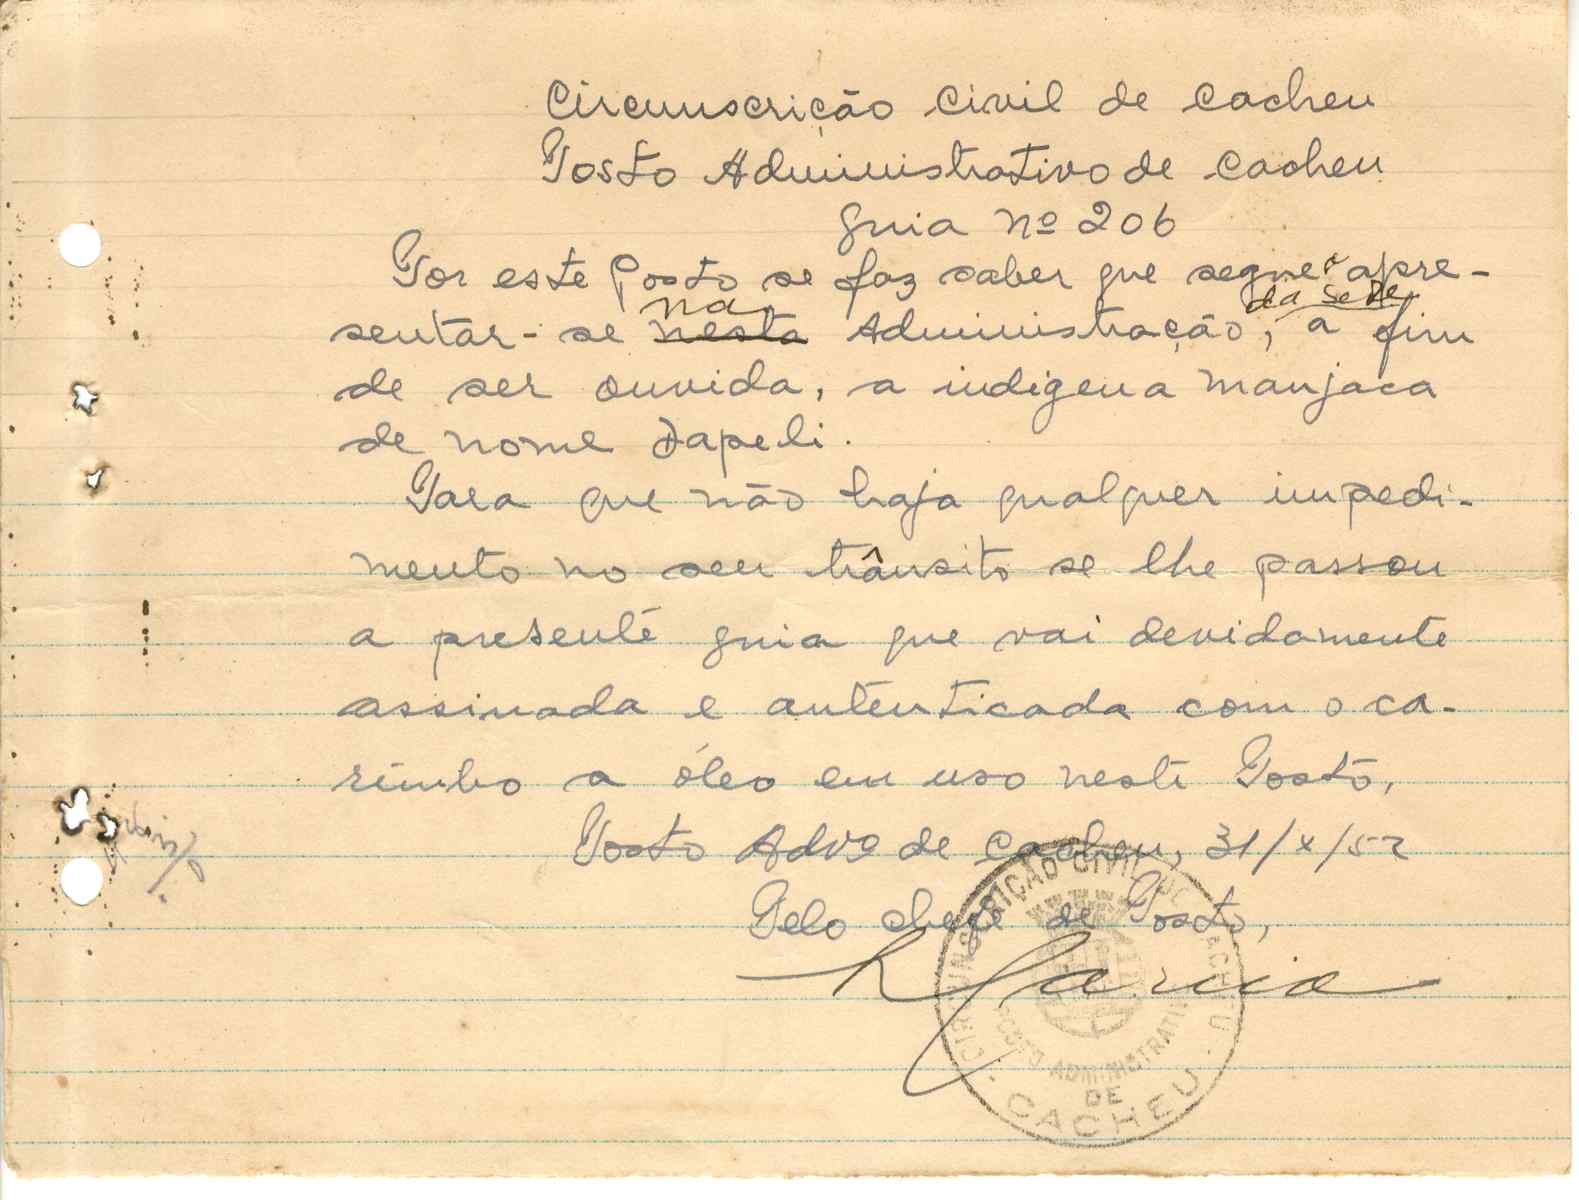 Circunscrição Civil de Cacheu
Posto Administrativo de Cacheu
guia nº 206
Por este Posto se faz saber que segue a apre-
sentar-se nesta na Administração, da sede a fim
de ser ouvida, a indigena manjaca
de nome Dapeli.
Para que não haja qualquer impedi-
mento no seu trânsito se lhe passou
a presente guia que vai devidamente
assinada e autenticada com o ca-
rimbo a óleo em uso neste Posto,
Posto Advº de Cacheu, 31/X/52
Pelo chefe de Posto,
Garcia
CIRCUNSCRIÇÃO CIVIL DE CACHEU
POSTO ADMINISTRATIVO
DE
CACHEU